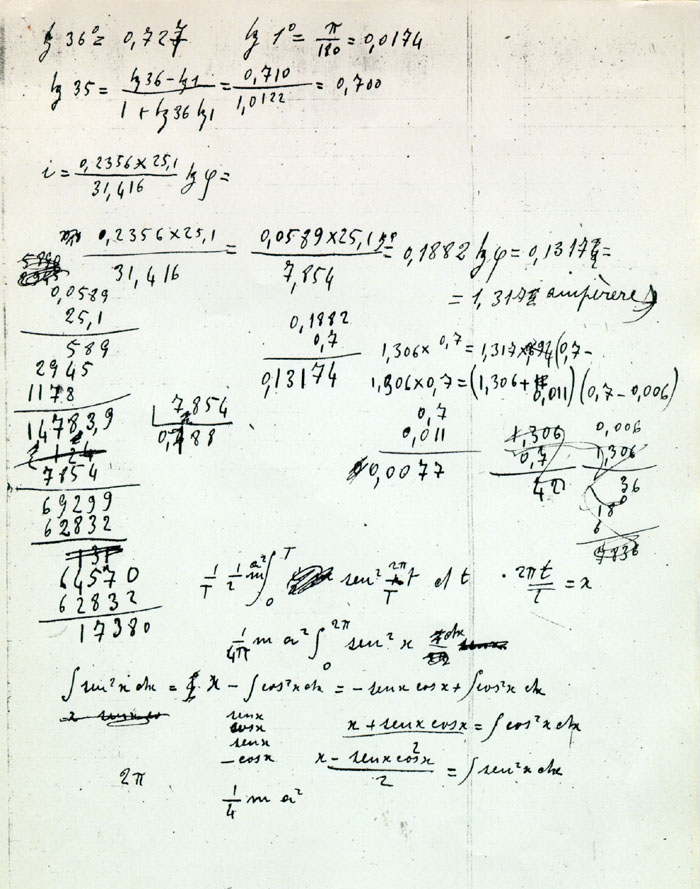 tg 36° = 0,727 tg 1° = π/180 = 0,0174
tg 35 = (tg36 - tg1)/(1 + tg36 tg1) = 0,710/1,0122 = 0,700
i = (0,2356 × 25,1)/31,416 tg φ =
(0,2356 × 25,1)/31,416 = (0,0589 × 25,1)/7,854 = 0,1882 tg φ = 0,1317 =
= 1,317 ampère
0,0589
25,1
589
2945
1178
1478,39
7854
69299
62832
64570
62832
17380
7,854
0,188
0,1882
0,7
0,13174
1,306 × 0,7 = 1,317 × (0,7 -
1,306 × 0,7 = (1,306 + 0,011) (0,7 - 0,006)
0,7
0,011
0,0077
1,306
0,7
42
0,006
1,306
36
18
6
7836
1/T 1/2 m a² ∫₀ᵀ sen² 2π/T t dt · 2πt/T = x
1/4π m a² ∫₀²π sen² x dx
∫ sen² x dx = x - ∫ cos² x dx = - sen x cos x + ∫ cos² x dx
sen x
cos x
sen x
- cos x
(x + sen x cos x)/2 = ∫ cos² x dx
(x - sen x cos x)/2 = ∫ sen² x dx
2π
1/4 m a²